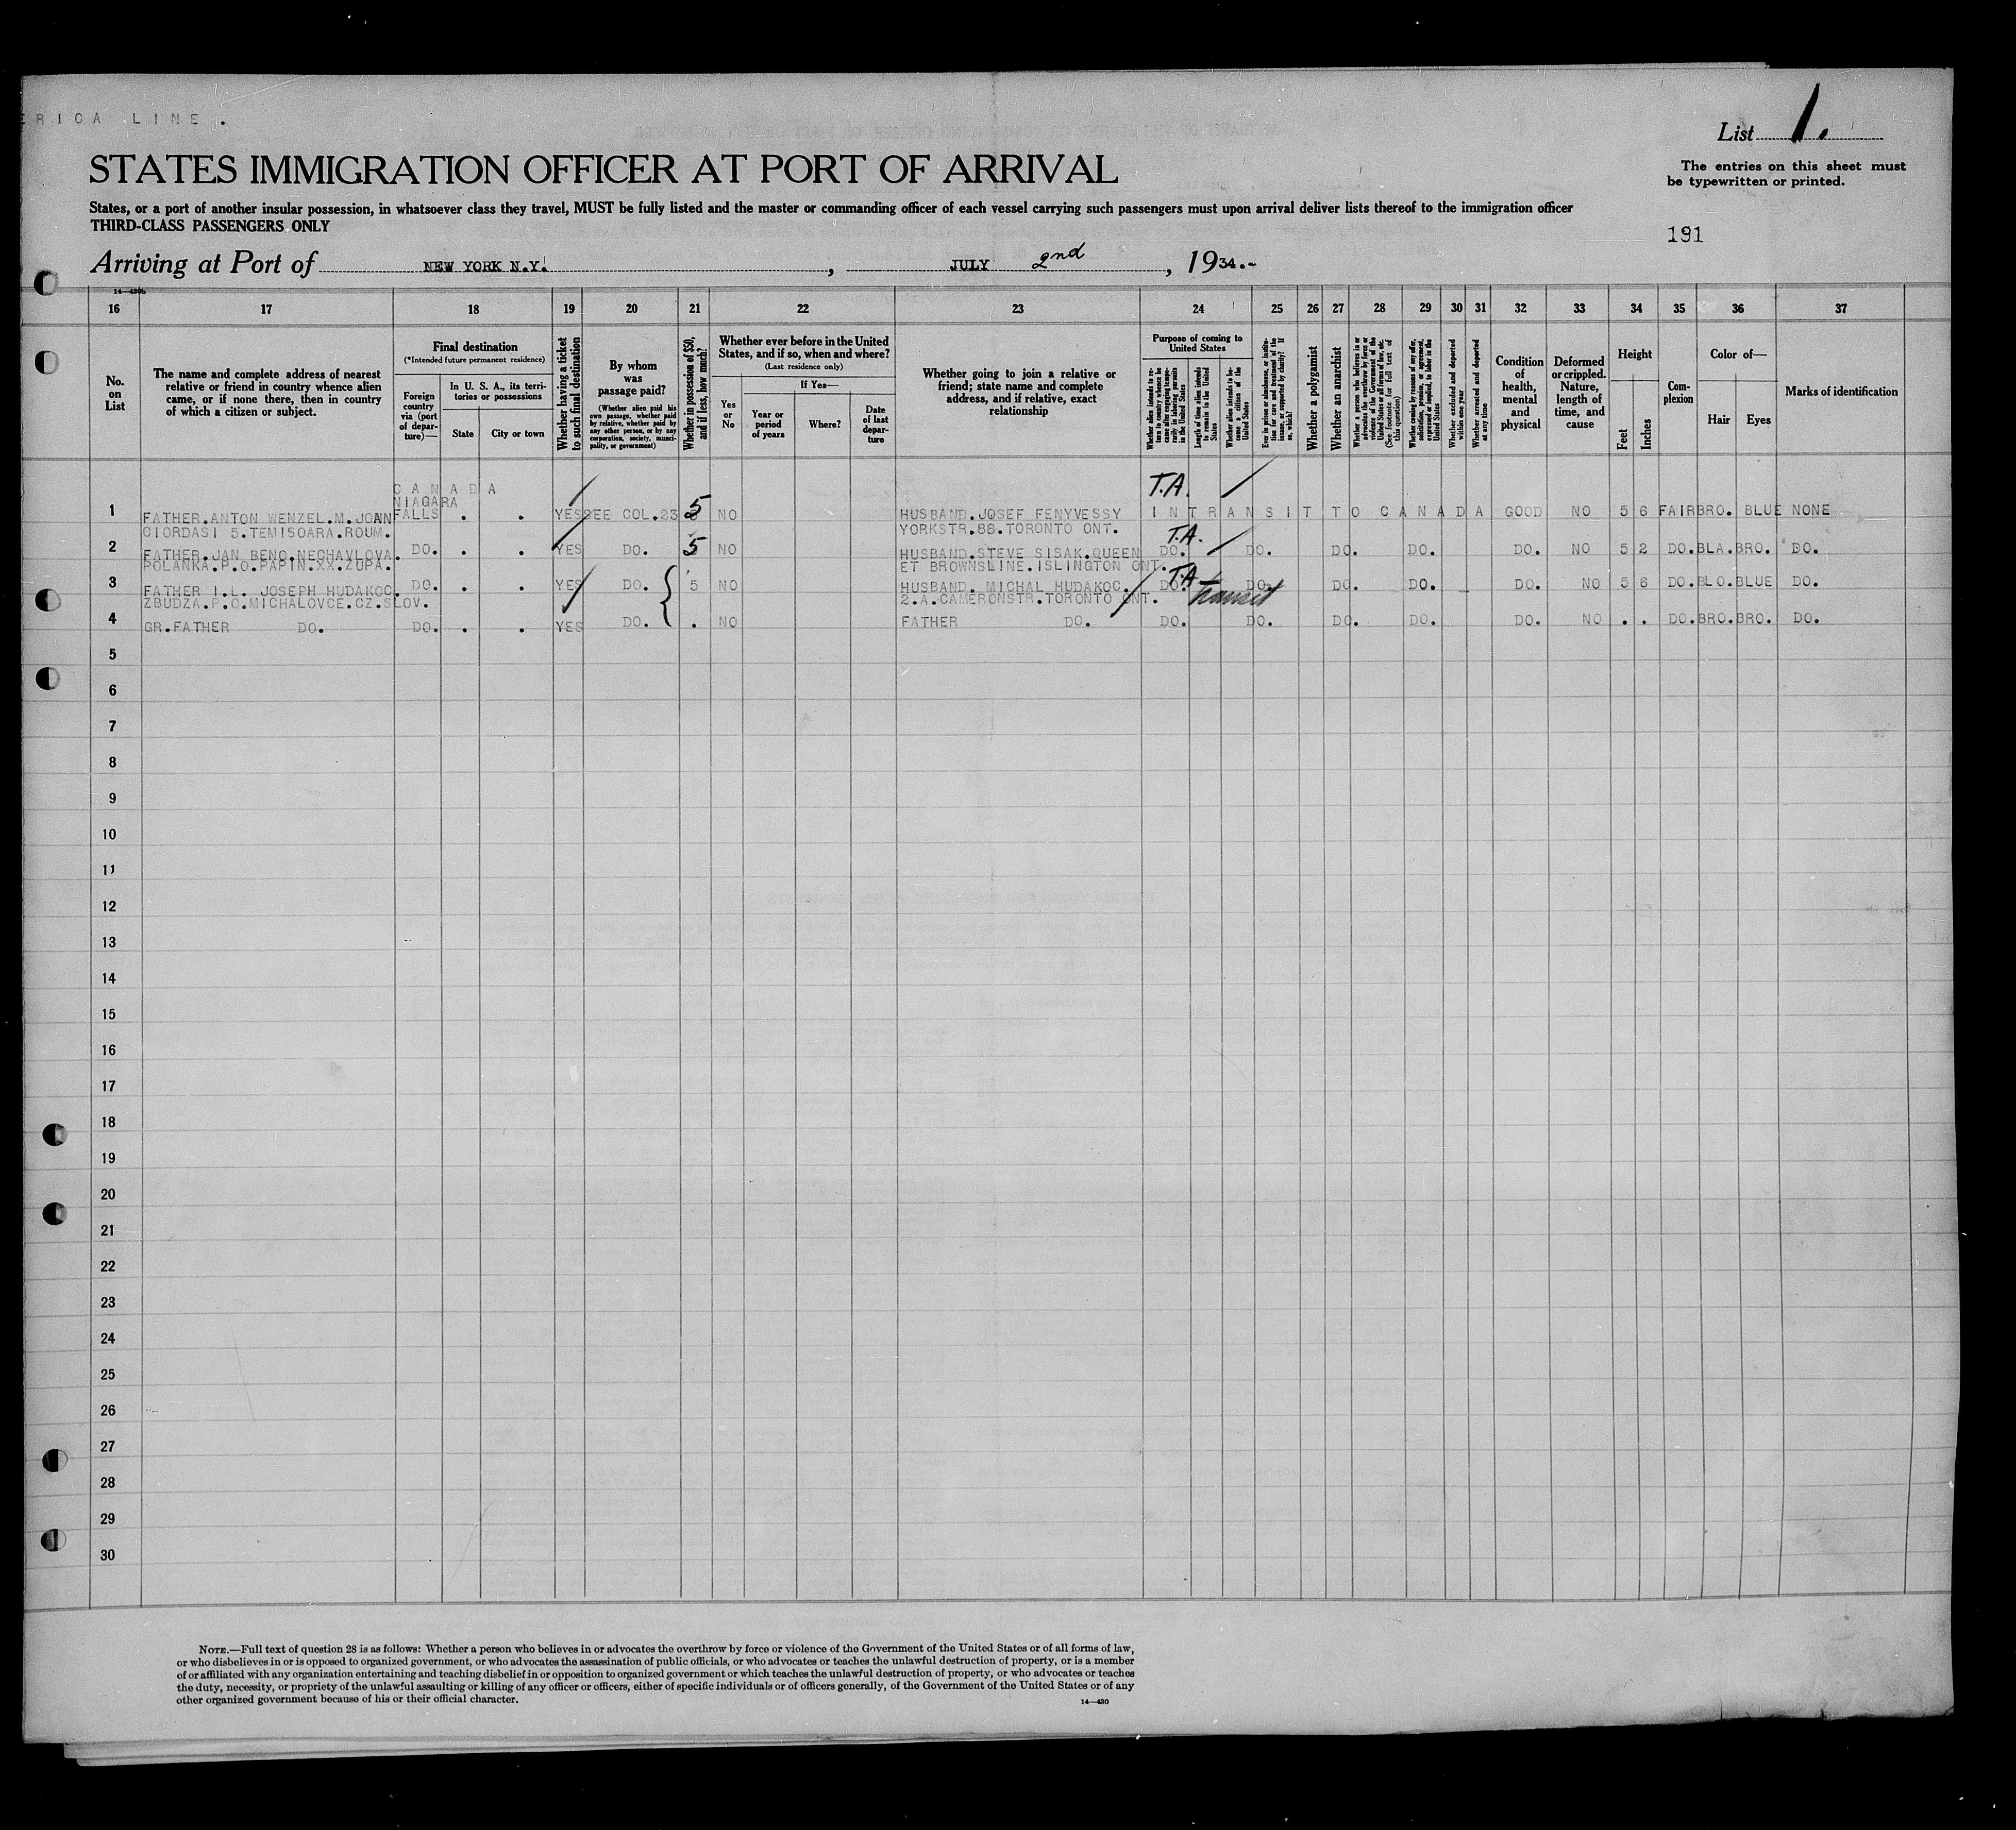 ERICA LINE.
List 1.
STATES IMMIGRATION OFFICER AT PORT OF ARRIVAL
The entries on this sheet must
be typewritten or printed.
States, or a port of another insular possession, in whatsoever class they travel, MUST be fully listed and the master or commanding officer of each vessel carrying such passengers must upon arrival deliver lists thereof to the immigration officer
THIRD-CLASS PASSENGERS ONLY
191
Arriving at Port of NEW YORK N.Y. , JULY 2nd , 1934.-
14—430b
16 17 18 19 20 21 22 23 24 25 26 27 28 29 30 31 32 33 34 35 36 37
No. on List
The name and complete address of nearest relative or friend in country whence alien came, or if none there, then in country of which a citizen or subject.
Final destination
(*Intended future permanent residence)
Foreign country via (port of departure)—
In U. S. A., its territories or possessions
State
City or town
Whether having a ticket to such final destination
By whom was passage paid?
(Whether alien paid his own passage, whether paid by relative, whether paid by any other person, or by any corporation, society, municipality, or government)
Whether in possession of $50, and if less, how much?
Whether ever before in the United States, and if so, when and where?
(Last residence only)
Yes or No
If Yes—
Year or period of years
Where?
Date of last departure
Whether going to join a relative or friend; state name and complete address, and if relative, exact relationship
Purpose of coming to United States
Whether alien intends to return to country whence he came after engaging temporarily in laboring pursuits in the United States
Length of time alien intends to remain in the United States
Whether alien intends to become a citizen of the United States
Ever in prison or almshouse, or institution for care and treatment of the insane, or supported by charity? If so, which?
Whether a polygamist
Whether an anarchist
Whether a person who believes in or advocates the overthrow by force or violence of the Government of the United States or all forms of law, etc. (See footnote for full text of this question)
Whether coming by reasons of any offer, solicitation, promise, or agreement, expressed or implied, to labor in the United States
Whether excluded and deported within one year
Whether arrested and deported at any time
Condition of health, mental and physical
Deformed or crippled. Nature, length of time, and cause
Height
Feet
Inches
Complexion
Color of—
Hair
Eyes
Marks of identification
CANADA
NIAGARA
1 FATHER.ANTON WENZEL.M.JOAN FALLS . . YES SEE COL.23 5 NO HUSBAND.JOSEF FENYVESSY T.A. IN TRANSIT TO CANADA GOOD NO 5 6 FAIR BRO. BLUE NONE
CIORDASI 5.TEMISOARA.ROUM. YORKSTR.88.TORONTO ONT.
2 FATHER.JAN BENO.NECHAVLOVA. DO. . . YES DO. 5 NO HUSBAND.STEVE SISAK.QUEEN T.A. DO. DO. DO. DO. DO. NO 5 2 DO. BLA. BRO. DO.
POLANKA.P.O.PAPIN.XX.ZUPA. ET BROWNSLINE.ISLINGTON ONT.
3 FATHER I.L. JOSEPH HUDAKOC. DO. . . YES DO. 5 NO HUSBAND. MICHAL HUDAKOC. T.A. DO. transit DO. DO. DO. DO. NO 5 6 DO. BLO. BLUE DO.
ZBUDZA.P.O.MICHALOVCE.CZ.SLOV. 2.A.CAMERONSTR.TORONTO ONT.
4 GR.FATHER DO. DO. . . YES DO. . NO FATHER DO. DO. DO. DO. DO. DO. NO . . DO. BRO. BRO. DO.
5
6
7
8
9
10
11
12
13
14
15
16
17
18
19
20
21
22
23
24
25
26
27
28
29
30
NOTE.—Full text of question 28 is as follows: Whether a person who believes in or advocates the overthrow by force or violence of the Government of the United States or of all forms of law,
or who disbelieves in or is opposed to organized government, or who advocates the assassination of public officials, or who advocates or teaches the unlawful destruction of property, or is a member
of or affiliated with any organization entertaining and teaching disbelief in or opposition to organized government or which teaches the unlawful destruction of property, or who advocates or teaches
the duty, necessity, or propriety of the unlawful assaulting or killing of any officer or officers, either of specific individuals or of officers generally, of the Government of the United States or of any
other organized government because of his or their official character.
14—430